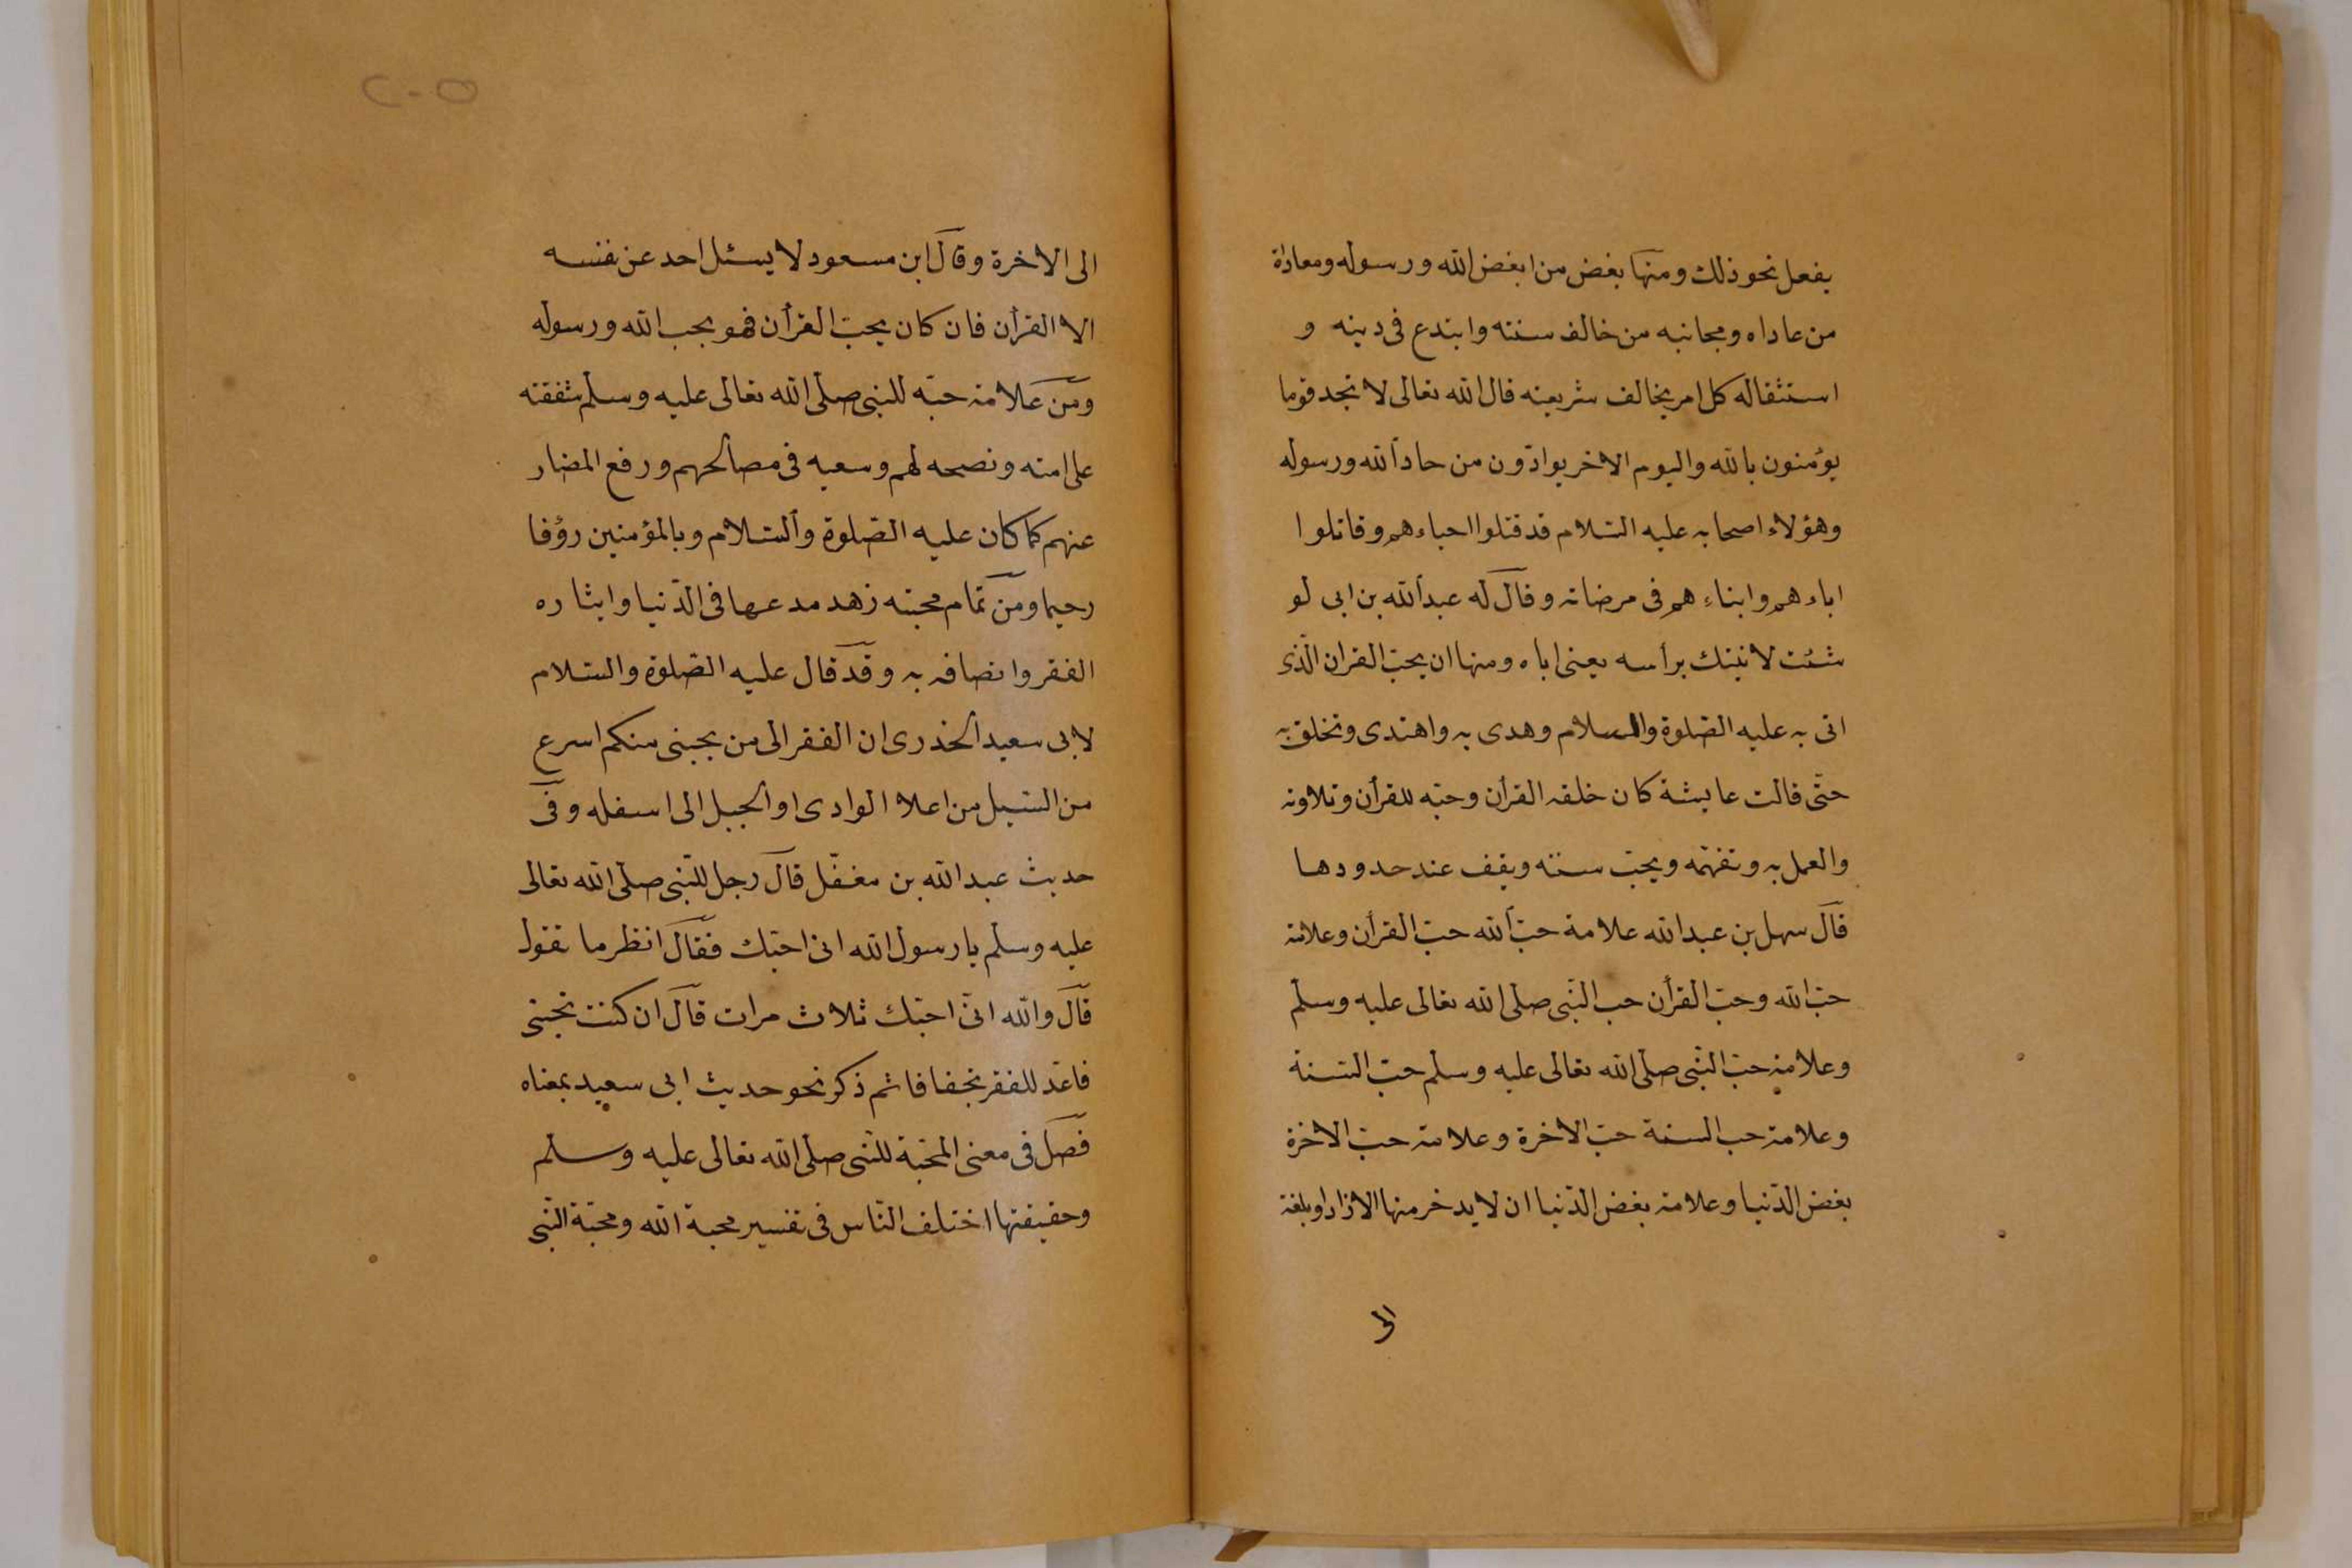 يفعل نحو ذلك ومنها بغض من ابغض الله ورسوله ومعاداة
من عاداه ومجانبه من خالف سنته وابتدع فى دينه و
استثقاله كل امر يخالف شريعته قال الله تعالى لا تجد قوما
يؤمنون بالله واليوم الاخر يوادّون من حادّ الله ورسوله
وهؤلاء اصحابه عليه السّلام قد قتلوا احباءهم وقاتلوا
اباءهم وابناءهم فى مرضاته وقال له عبد الله بن ابى لو
شئت لاتيتك برأسه يعنى اباه ومنها ان يحبّ القران الّذى
اتى به عليه الصّلوة والسلام وهدى به واهتدى وتخلق به
حتّى قالت عايشة كان خلقه القرأن وحبّه للقرأن وتلاوته
والعمل به وتفهّمه ويحبّ سنته ويقف عند حدودها
قال سهل بن عبد الله علامة حبّ الله حبّ القرأن وعلامة
حبّ الله وحبّ القرأن حب النّبى صلى الله تعالى عليه وسلّم
وعلامة حبّ النّبى صلّى الله تعالى عليه وسلّم حبّ السّنة
وعلامة حب السنة حبّ الاخرة وعلامة حبّ الاخرة
بغض الدّنيا وعلامة بغض الدّنيا ان لا يدخر منها الا زادا وبلغة
الى
٢٠٥
الى الاخرة وقال ابن مسعود لا يسئل احد عن نفسه
الا القرأن فان كان يحبّ القرأن فهو يحب الله ورسوله
ومن علامة حبّه للنبى صلّى الله تعالى عليه وسلّم شفقته
على امته ونصحه لهم وسعيه فى مصالحهم ورفع المضار
عنهم كما كان عليه الصّلوة والسّلام وبالمؤمنين رؤفا
رحيما ومن تمام محبته زهد مدعيها فى الدّنيا وايثاره
الفقر واتصافه به وقد قال عليه الصّلوة والسّلام
لابى سعيد الخدرى ان الفقر الى من يحبنى منكم اسرع
من السّيل من اعلا الوادى او الجبل الى اسفله وفى
حديث عبد الله بن مغفّل قال رجل للنّبى صلّى الله تعالى
عليه وسلّم يا رسول الله انى احبّك فقال انظر ما تقول
قال والله انّى احبّك ثلاث مرات قال ان كنت تحبّنى
فاعدّ للفقر تجفافا ثم ذكر نحو حديث ابى سعيد بمعناه
فصل فى معنى المحبّة للنّبى صلّى الله تعالى عليه وسلم
وحقيقتها اختلف النّاس فى تفسير محبة الله ومحبّة النّبى